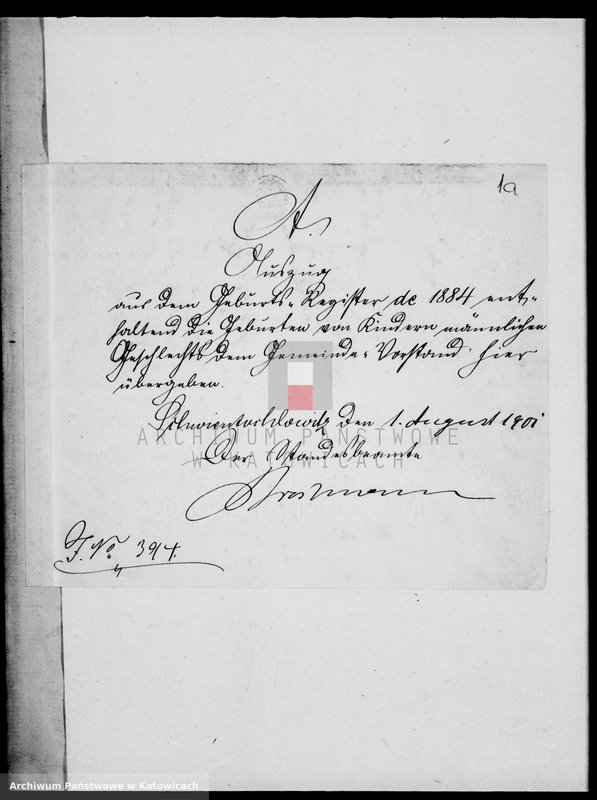 1a
A.
Auszug
aus dem Geburts-Register de 1884 ent-
haltend die Geburten von Kindern männlichen
Geschlechts dem Gemeinde-Vorstand hier
übergeben.
Schwientochlowitz den 1. August 1901
Der Standesbeamte
J. No 394.
ARCHIWUM PAŃSTWOWE
W KATOWICACH
Archiwum Państwowe w Katowicach